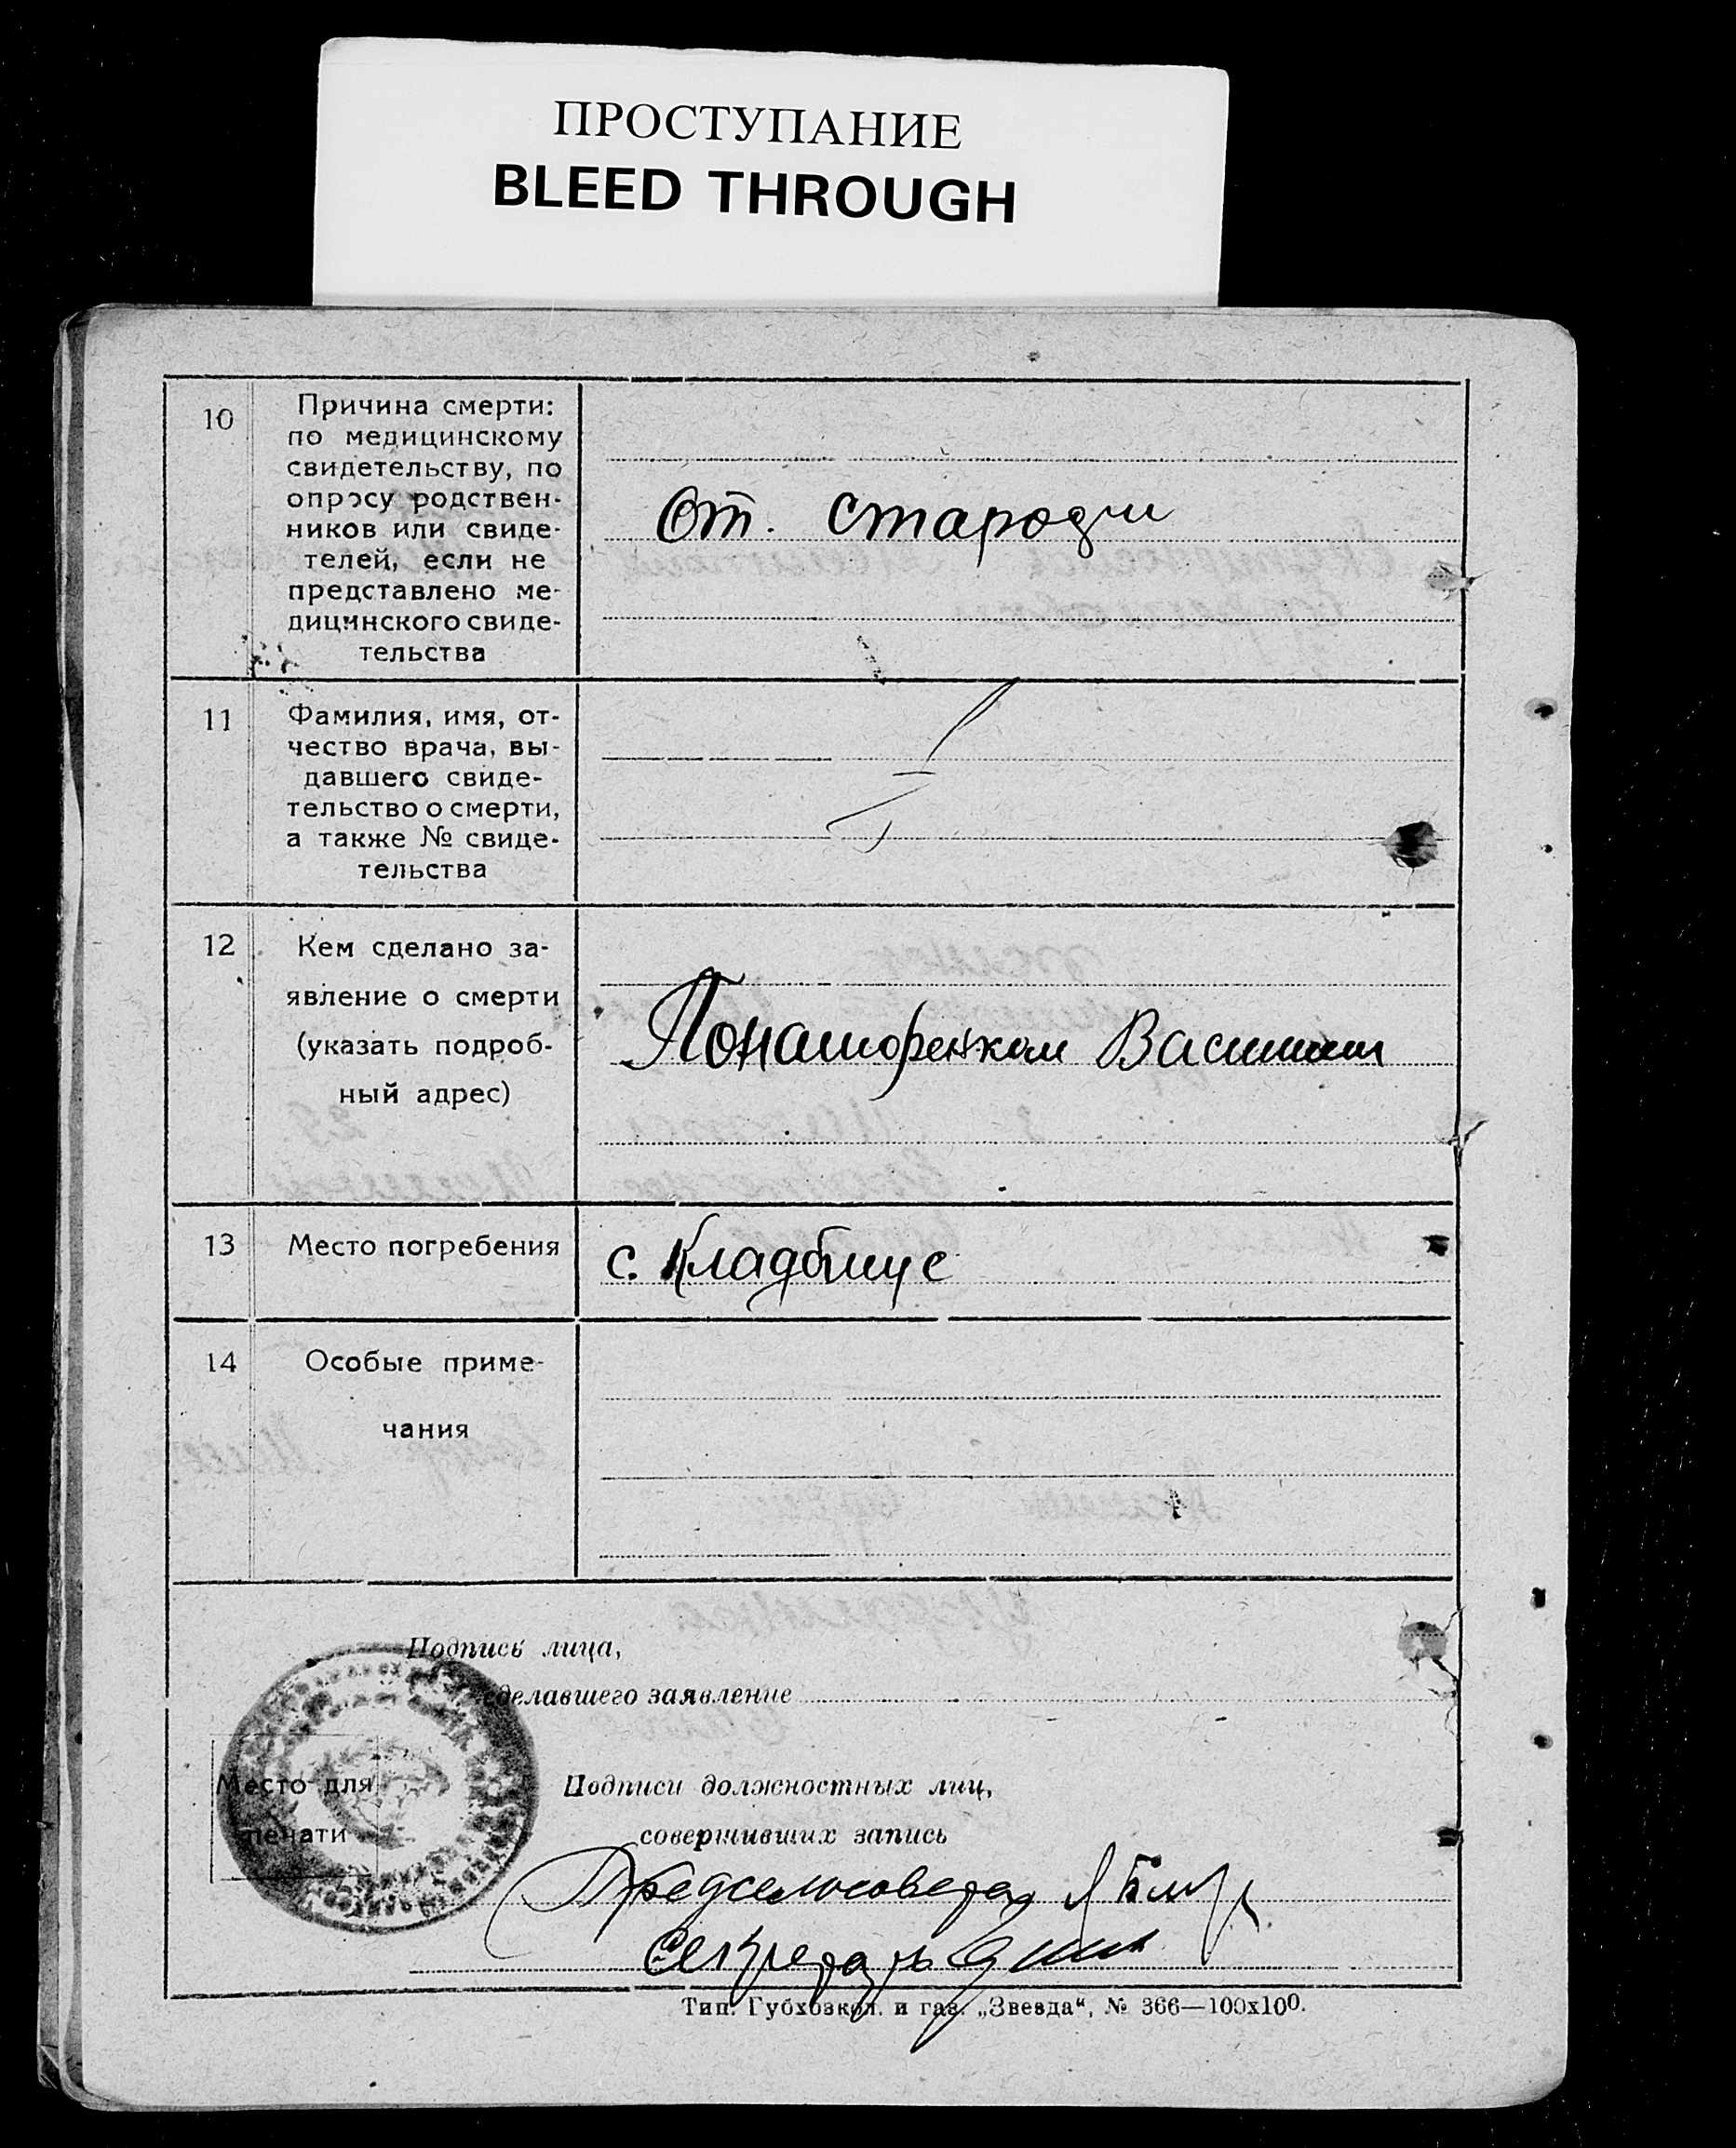 ПРОСТУПАНИЕ
BLEED THROUGH
10
Причина смерти:
по медицинскому
свидетельству, по
опросу родствен-
ников или свиде-
телей, если не
представлено ме-
дицинского свиде-
тельства
От. старости
11
Фамилия, имя, от-
чество врача, вы-
давшего свиде-
тельство о смерти,
а также № свиде-
тельства
12
Кем сделано за-
явление о смерти
(указать подроб-
ный адрес)
13
Место погребения
с. Кладбище
14
Особые приме-
чания
Подпись лица,
сделавшего заявление
Место для
печати
Подписи должностных лиц,
совершивших запись
Предсельсовета
Секретарь
Тип. Губхозкол. и газ. „Звезда“, № 366—100х100.